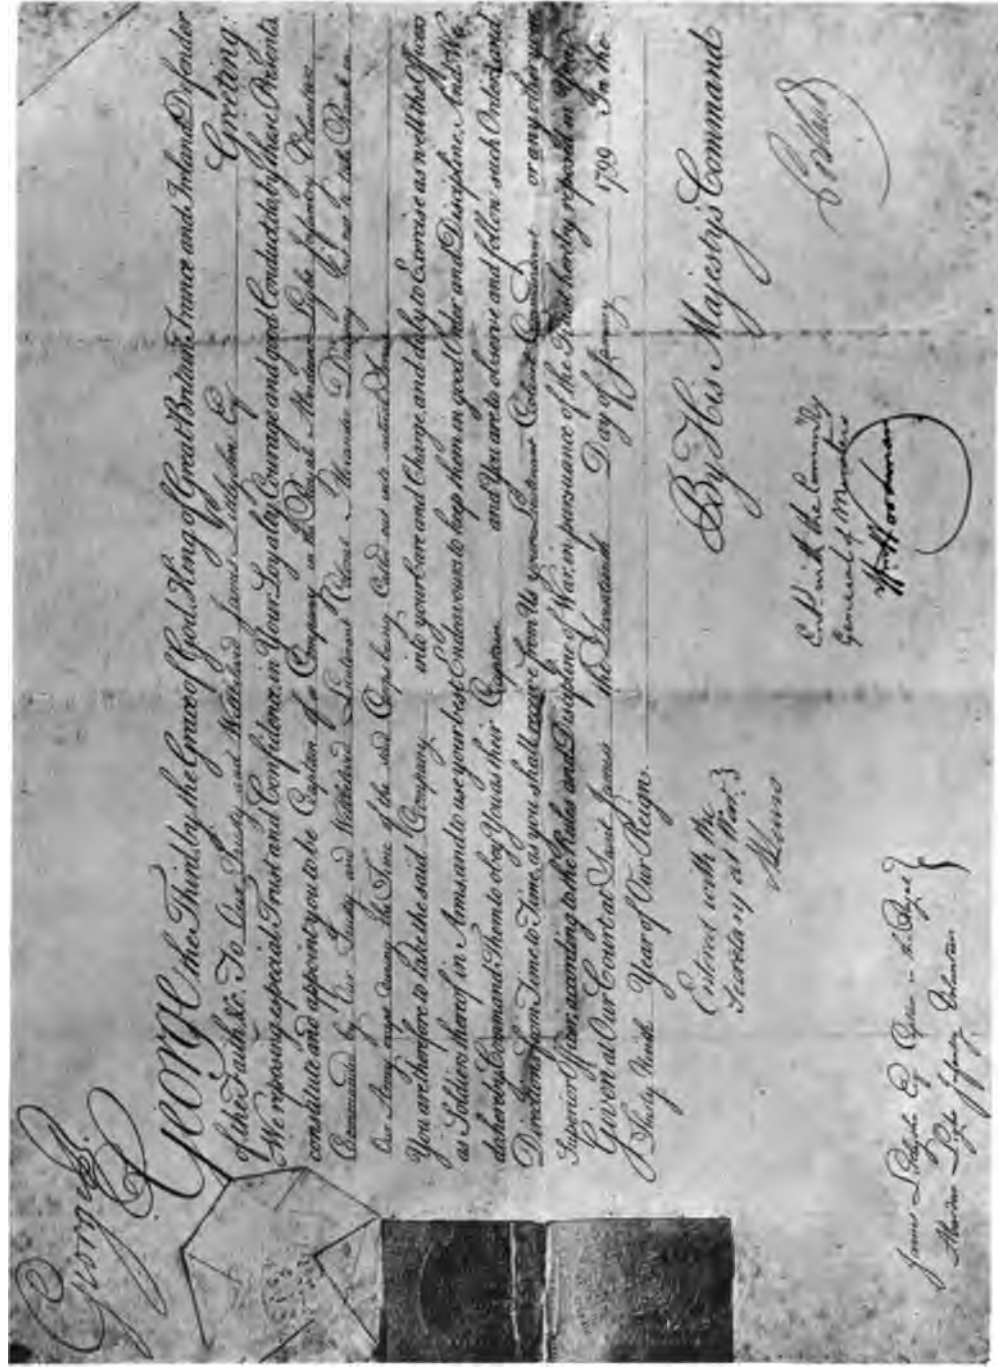 George R.
GEORGE the Third by the Grace of God, King of Great Britain, France and Ireland, Defender
of the Faith, &c. To Our Trusty and Wellbeloved James Esq Greeting
We reposing especial Trust and Confidence in Your Loyalty, Courage and good Conduct, do by these Presents
constitute and appoint you to be Captain of a Company in the Royal Aberdeen Light Infantry Volunteers
Commanded by Our Trusty and Wellbeloved Lieutenant Colonel Alexander but not to take Rank in
Our Army except during the Time of the said Company being called out into actual Service
You are therefore to take the said Company into your Care and Charge, and duly to Exercise as well the Officers
as Soldiers thereof in Arms and to use your best Endeavours to keep them in good Order and Discipline, And We
do hereby Command Them to obey You as their Captain and You are to observe and follow such Orders and
Directions from Time to Time, as you shall receive from Us your Lieutenant Colonel Commandant or any other your
Superior Officer, according to the Rules and Discipline of War, in pursuance of the Trust hereby reposed in You.
Given at Our Court at Saint James's the Day of January 1799 In the
Thirty Ninth Year of Our Reign.
By His Majesty's Command
Portland
Entered with the
Secretary at War
Entd. with the Commissary
General of Musters
Wm Woodman
James Esq Captain in the Royal
Aberdeen Light Infantry Volunteers